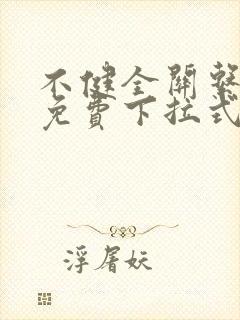 不健全關繫
免費下拉式
浮屠妖